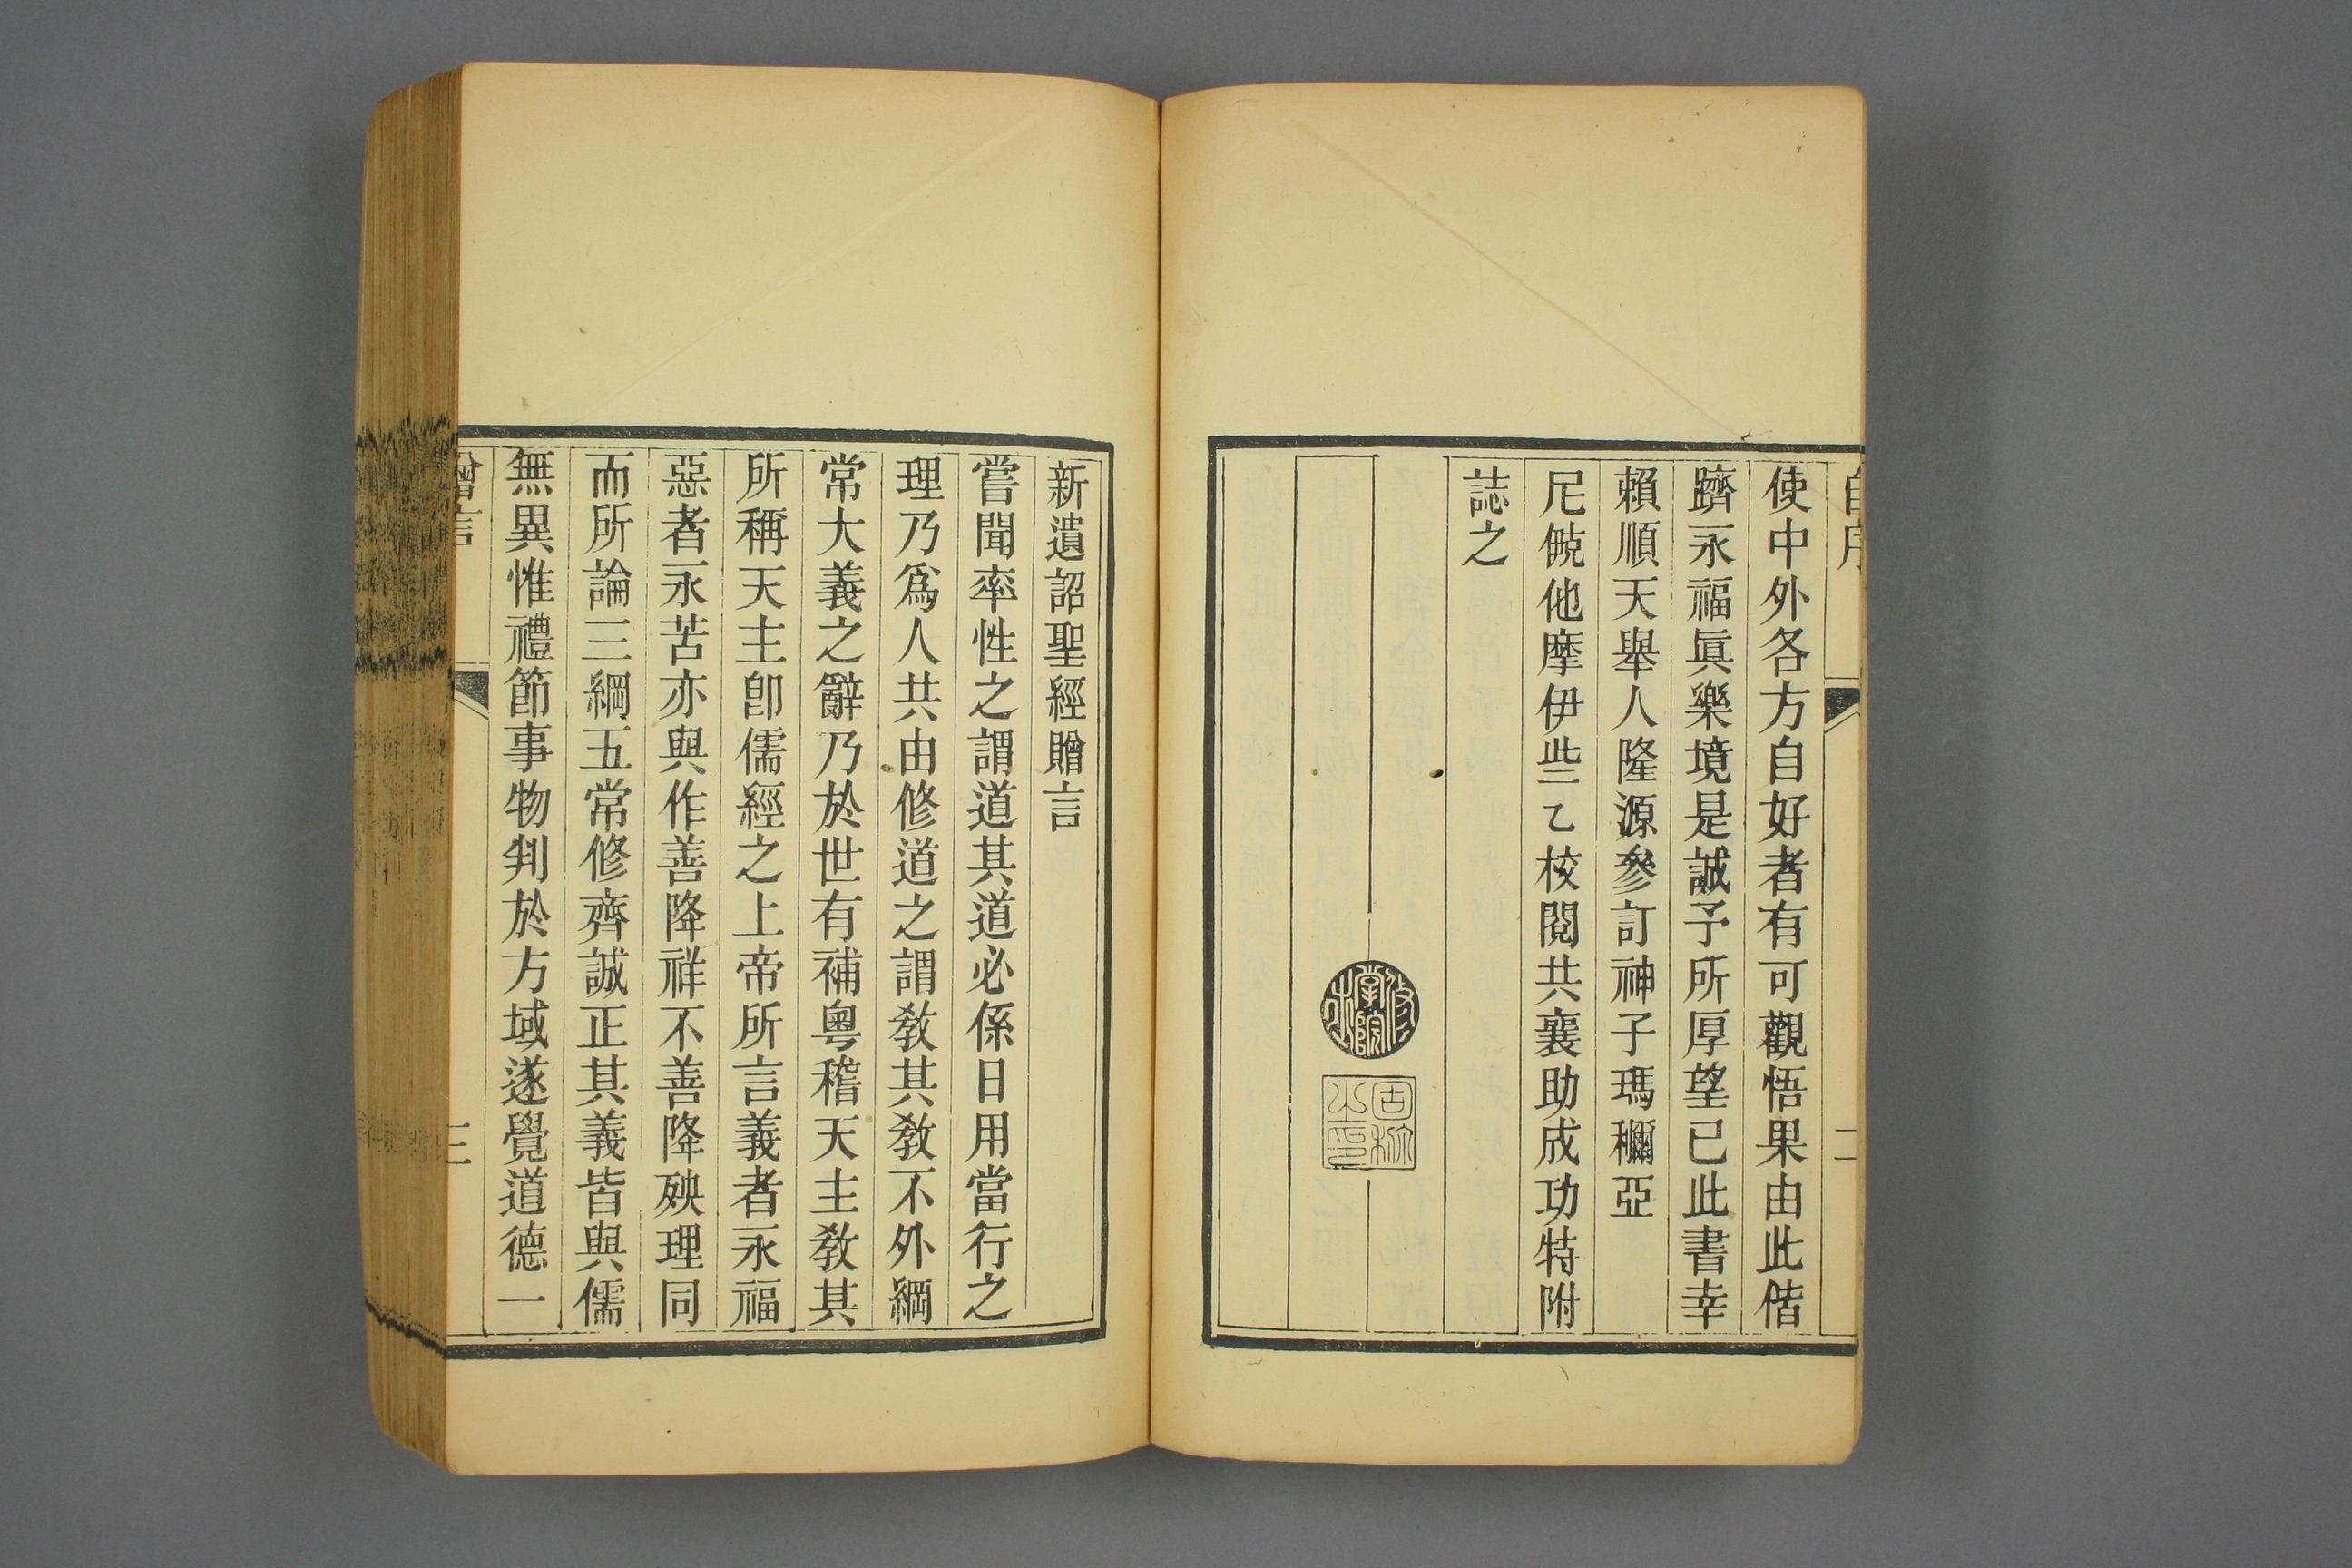 自序
二
使中外各方自好者有可觀悟果由此偕
躋永福眞樂境是誠予所厚望已此書幸
賴順天舉人隆源參訂神子瑪穪亞
尼僌他摩伊些乙校閱共襄助成功特附
誌之
新遺詔聖經贈言
嘗聞率性之謂道其道必係日用當行之
理乃爲人共由修道之謂敎其敎不外綱
常大義之辭乃於世有補粵稽天主敎其
所稱天主卽儒經之上帝所言義者永福
惡者永苦亦與作善降祥不善降殃理同
而所論三綱五常修齊誠正其義皆與儒
無異惟禮節事物判於方域遂覺道德一
贈言
三